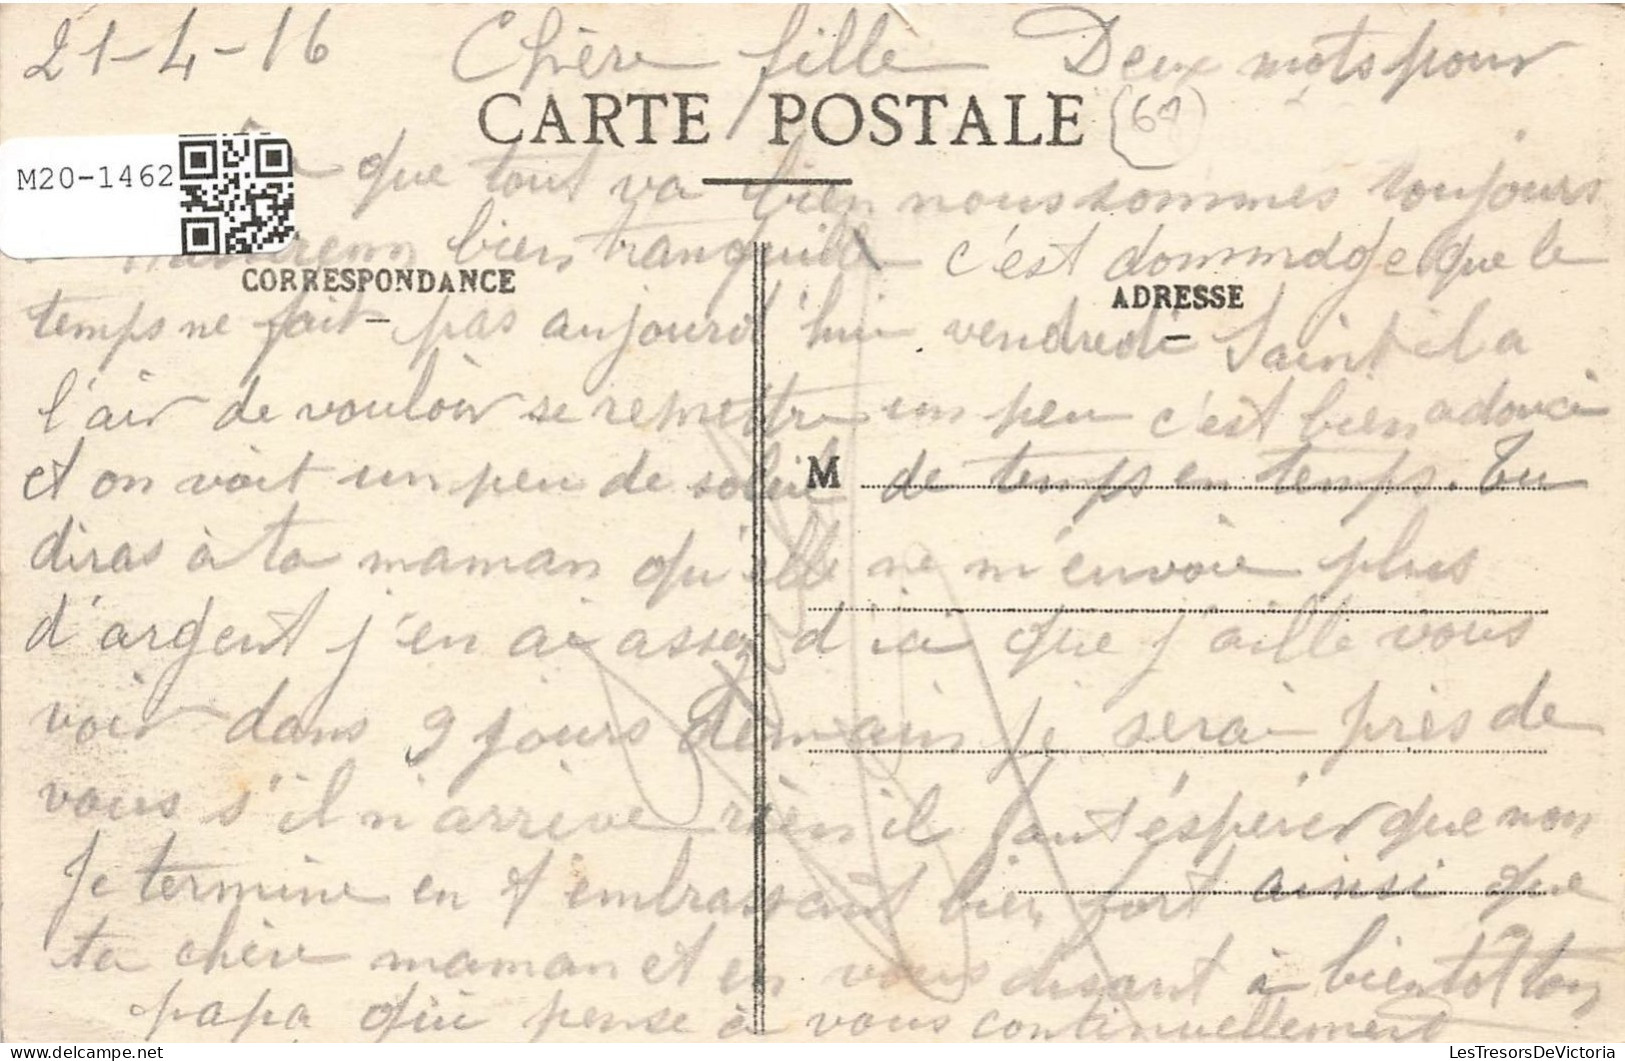 21-4-16 Chère fille Deux mots pour
CARTE POSTALE
(68)
M20-1462
que tout va bien nous sommes toujours
bien tranquille c'est dommage que le
CORRESPONDANCE
ADRESSE
temps ne fait pas aujourd'hui vendredi Saint il a
l'air de vouloir se remettre un peu c'est bien adouci
et on voit un peu de soleil de temps en temps. Tu
M
diras à ta maman qu'elle ne m'envoie plus
d'argent j'en ai assez d'ici que j'aille vous
voir dans 9 jours demain je serai près de
vous s'il n'arrive rien il faut espérer que non
Je termine en t'embrassant bien fort ainsi que
ta chère maman et en vous disant à bientôt ton
papa qui pense à vous continuellement
LesTresorsDeVictoria